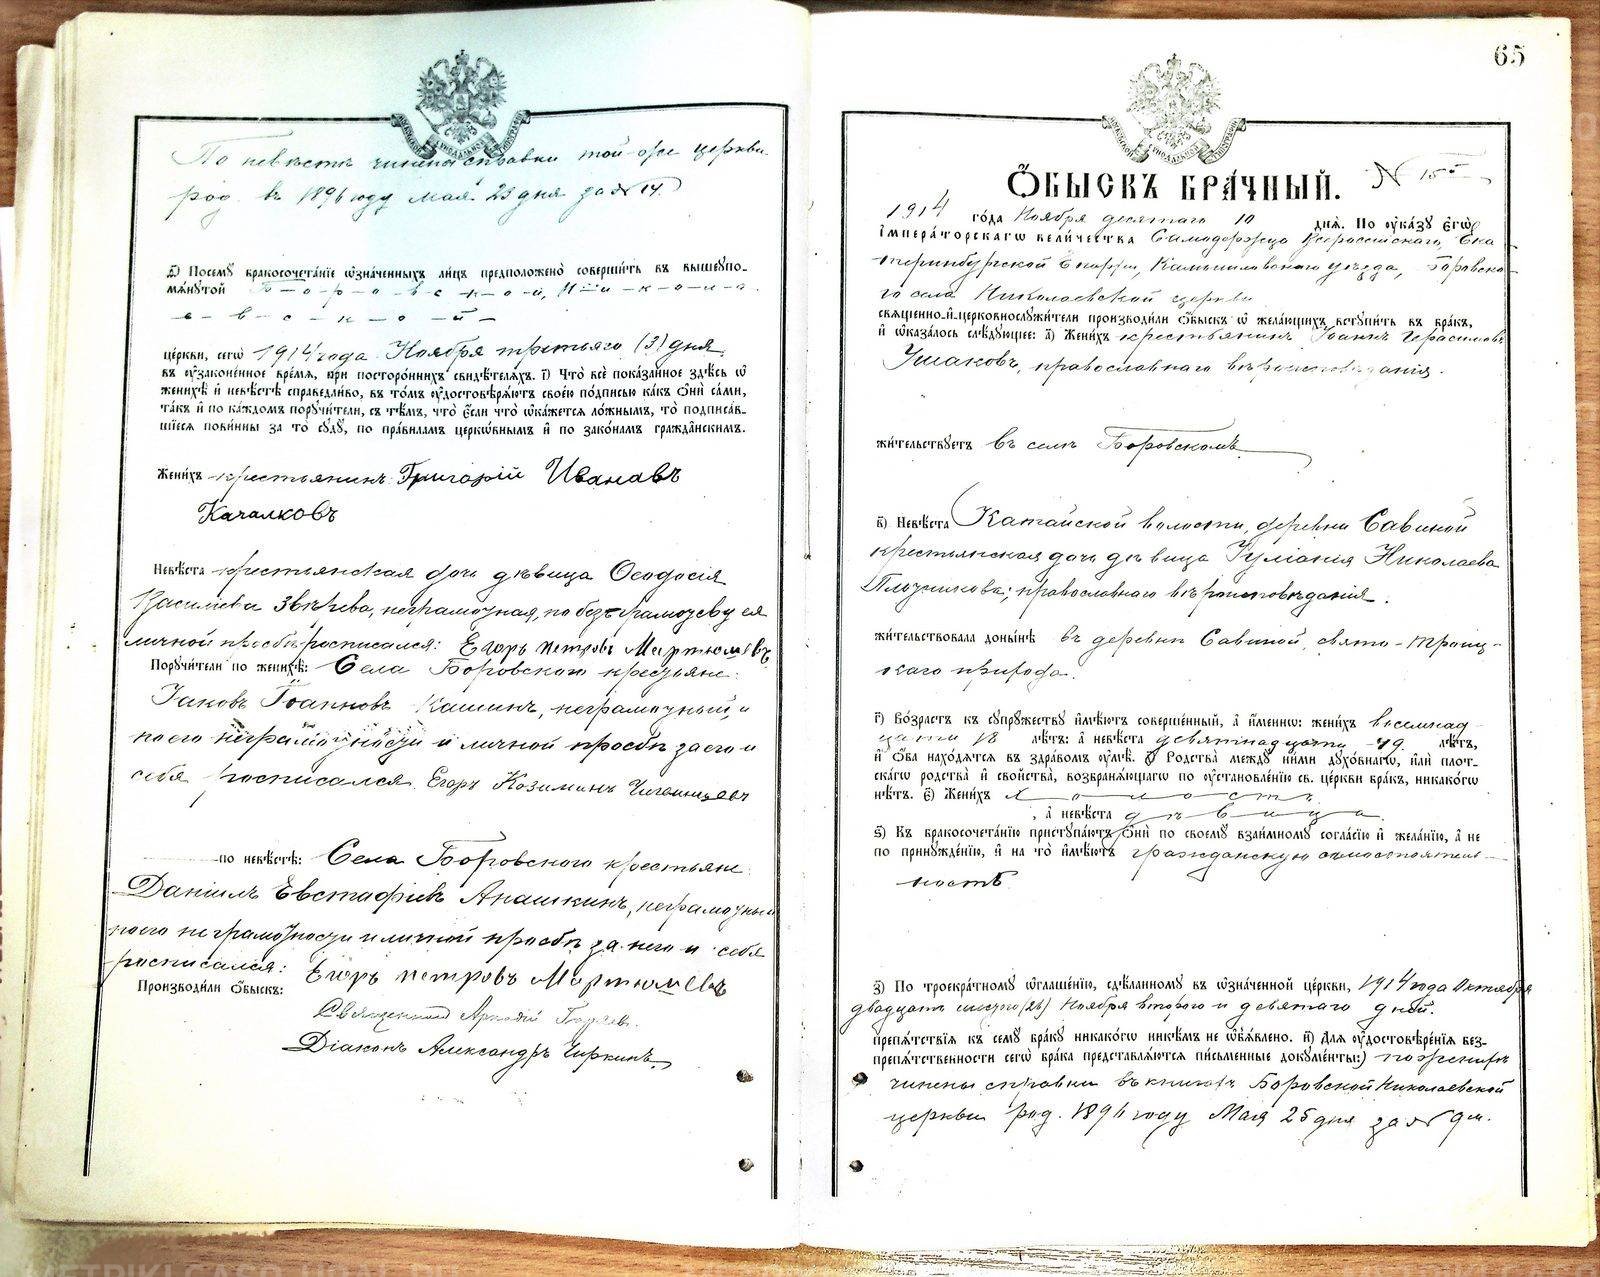 По невѣстѣ чинены справки той-же церкви
род. въ 1896 году мая 23 дня за № 14.
д) Посему бракосочетанїе ѡзначенныхъ лицъ предположено совершить въ вышеупо-
мянутой Б-о-р-о-в-с-к-о-й, Н-и-к-о-л-а-
е-в-с-к-о-й-
церкви, сегѡ 1914 года Ноября третьяго (3) дня,
въ узаконенное время, при постороннихъ свидѣтеляхъ. ı) Что всѐ показанное здѣсь ѡ
женихѣ и невѣстѣ справедливо, въ томъ удостовѣряютъ своею подписью какъ ѻни сами,
такъ и по каждомъ поручители, съ тѣмъ, что єсли что ѡкажется ложнымъ, то подписав-
шїеся повинны за то суду, по правиламъ церкѡвнымъ и по законамъ гражданскимъ.
Женихъ крестьянинъ Григорій Ивановъ
Качалковъ
Невѣста крестьянская дочь дѣвица Ѳеодосія
Васильева Звѣрева, неграмотная, по безграмотству ея
личной прозбѣ росписался: Егоръ Петровъ Мартюшевъ
Поручители по женихѣ: Села Боровского крестьяне:
Іаковъ Іоанновъ Кашинъ, неграмотный, и
по его неграмотности и личной прозбѣ за его и
себя росписался Егоръ Козминъ
по невѣстѣ: Села Боровского крестьяне:
Даніилъ Евстафіевъ Анашкинъ, неграмотный
по его неграмотности и личной прозбѣ за него и себя
росписался: Егоръ Петровъ Мартюшевъ
Производили ѻбыскъ:
Священникъ Аркадій
Діаконъ Александръ Чиркинъ
65
ѺБЫСКЪ БРАЧНЫЙ. № 15
1914 года Ноября десятаго 10 дня. По указу Єгѡ
Імператорскагѡ величества Самодержца Всероссійскаго, Ека-
теринбургской Епархіи, Камышловскаго уѣзда, Боровска-
го села Николаевской церкви
священно-и-церковнослужители производили ѻбыскъ ѡ желающихъ вступить въ бракъ,
и ѡказалось слѣдующее: а) Женихъ крестьянинъ Іоаннъ Герасимовъ
Ушаковъ, православнаго вѣроисповѣданія.
жительствуетъ въ селѣ Боровскомъ
в) Невѣста Катайской волости, деревни Савиной
крестьянская дочь дѣвица Іуліанія Николаева
Плотникова, православнаго вѣроисповѣданія.
жительствовала донынѣ въ деревнѣ Савиной, Свято-Троиц-
каго прихода.
г) Возрастъ къ супружеству имѣютъ совершенный, а именнѡ: женихъ восемнад-
цати 18 лѣтъ: а невѣста девятнадцати -19- лѣтъ,
и ѻба находятся въ здравомъ умѣ. д) Родства между ними духовнагѡ, или плот-
скагѡ родства и свойства, возбраняющагѡ по установленїю св. церкви бракъ, никакогѡ
нѣтъ. є) Женихъ х о л о с т ъ
, а невѣста д ѣ в и ц а.
ѕ) Къ бракосочетанїю приступаютъ ѻни по своему взаимному согласїю и желанїю, а не
по принужденїю, и на то имѣютъ гражданскую самостоятель-
ность
з) По троекратному ѡглашенїю, сдѣланному въ ѡзначенной церкви, 1914 года Октября
двадцать шестаго (26) Ноября второго и девятаго дней.
препятствїя къ сему браку никакогѡ никѣмъ не ѡбъявлено. и) Для удостовѣренїя без-
препятственности сегѡ брака представляются письменные документы:) по женихѣ
чинены справки въ книгахъ Боровской Николаевской
церкви род. 1896 году Мая 25 дня за № 9 м.